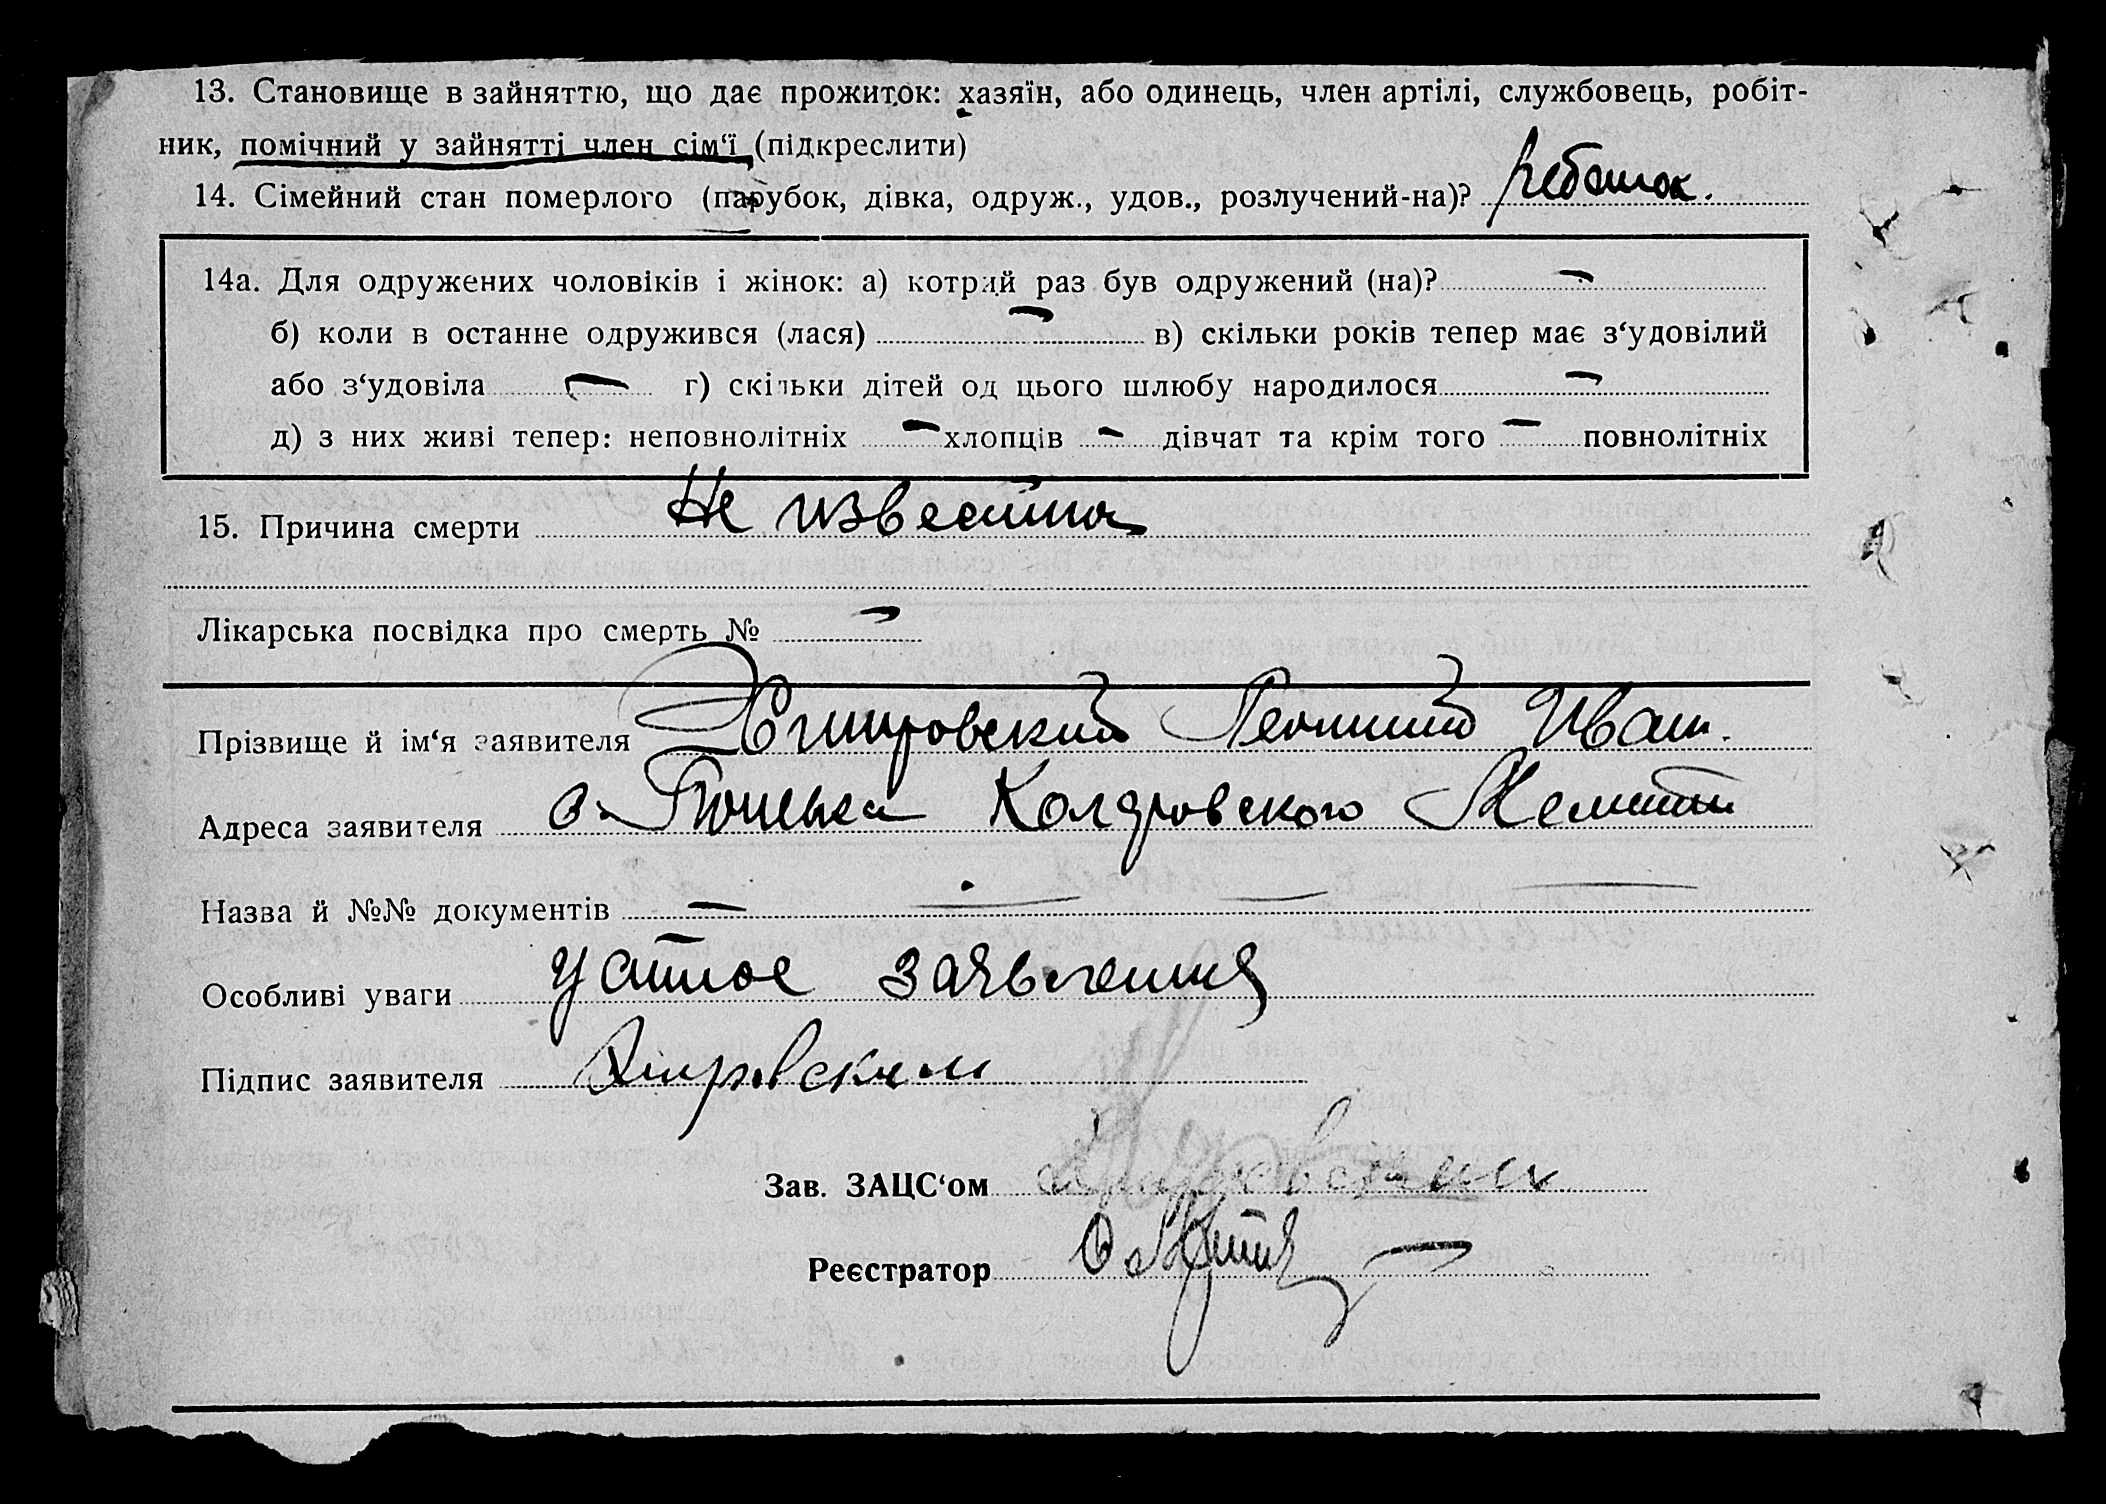 13. Становище в зайняттю, що дає прожиток: хазяїн, або одинець, член артілі, службовець, робіт-
ник, помічний у зайнятті член сім‘ї (підкреслити)
14. Сімейний стан померлого (парубок, дівка, одруж., удов., розлучений-на)? ребенок.
14а. Для одружених чоловіків і жінок: а) котрий раз був одружений (на)? —
б) коли в останне одружився (лася) — в) скільки років тепер має з‘удовілий
або з‘удовіла — г) скільки дітей од цього шлюбу народилося —
д) з них живі тепер: неповнолітніх — хлопців — дівчат та крім того — повнолітніх
15. Причина смерти Не известна
Лікарська посвідка про смерть № —
Прізвище й ім‘я заявителя Иван.
Адреса заявителя с.
Назва й №№ документів —
Особливі уваги устное заявления
Підпис заявителя
Зав. ЗАЦС‘ом
Реєстратор